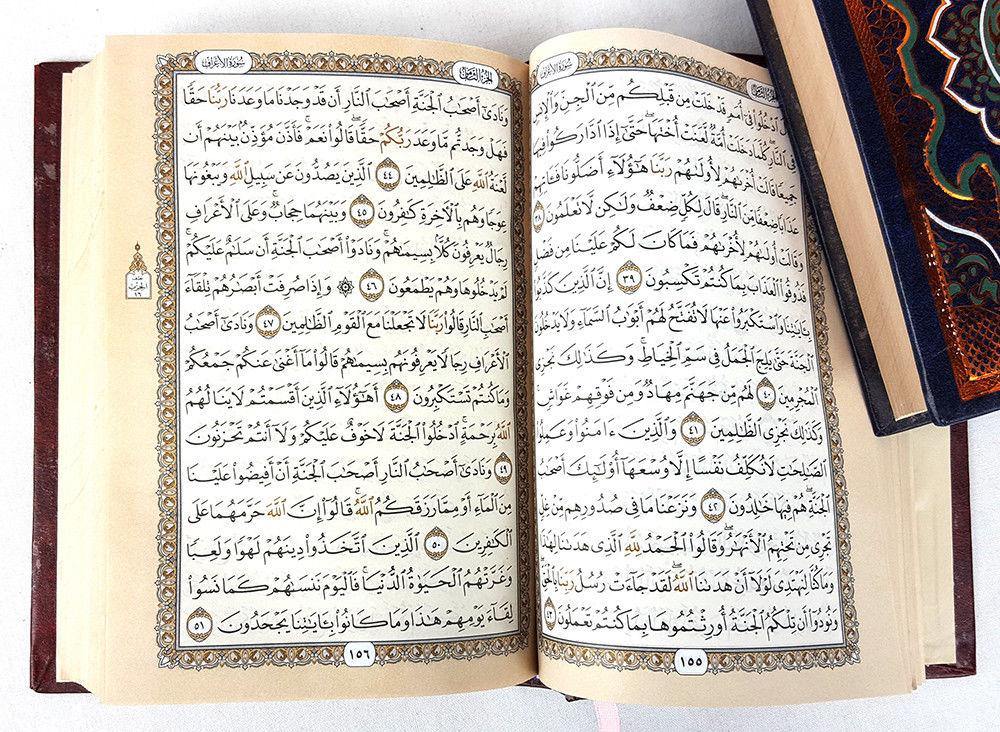 سورة الأعراف
الجزء الثامن
قَالَ ٱدۡخُلُواْ فِيٓ أُمَمٖ قَدۡ خَلَتۡ مِن قَبۡلِكُم مِّنَ ٱلۡجِنِّ وَٱلۡإِنسِ
فِي ٱلنَّارِۖ كُلَّمَا دَخَلَتۡ أُمَّةٞ لَّعَنَتۡ أُخۡتَهَاۖ حَتَّىٰٓ إِذَا ٱدَّارَكُواْ فِيهَا
جَمِيعٗا قَالَتۡ أُخۡرَىٰهُمۡ لِأُولَىٰهُمۡ رَبَّنَا هَٰٓؤُلَآءِ أَضَلُّونَا فَـَٔاتِهِمۡ
عَذَابٗا ضِعۡفٗا مِّنَ ٱلنَّارِۖ قَالَ لِكُلّٖ ضِعۡفٞ وَلَٰكِن لَّا تَعۡلَمُونَ ٣٨
وَقَالَتۡ أُولَىٰهُمۡ لِأُخۡرَىٰهُمۡ فَمَا كَانَ لَكُمۡ عَلَيۡنَا مِن فَضۡلٖ
فَذُوقُواْ ٱلۡعَذَابَ بِمَا كُنتُمۡ تَكۡسِبُونَ ٣٩ إِنَّ ٱلَّذِينَ كَذَّبُواْ
بِـَٔايَٰتِنَا وَٱسۡتَكۡبَرُواْ عَنۡهَا لَا تُفَتَّحُ لَهُمۡ أَبۡوَٰبُ ٱلسَّمَآءِ وَلَا يَدۡخُلُونَ
ٱلۡجَنَّةَ حَتَّىٰ يَلِجَ ٱلۡجَمَلُ فِي سَمِّ ٱلۡخِيَاطِۚ وَكَذَٰلِكَ نَجۡزِي
ٱلۡمُجۡرِمِينَ ٤٠ لَهُم مِّن جَهَنَّمَ مِهَادٞ وَمِن فَوۡقِهِمۡ غَوَاشٖۚ
وَكَذَٰلِكَ نَجۡزِي ٱلظَّٰلِمِينَ ٤١ وَٱلَّذِينَ ءَامَنُواْ وَعَمِلُواْ
ٱلصَّٰلِحَٰتِ لَا نُكَلِّفُ نَفۡسًا إِلَّا وُسۡعَهَآ أُوْلَٰٓئِكَ أَصۡحَٰبُ
ٱلۡجَنَّةِۖ هُمۡ فِيهَا خَٰلِدُونَ ٤٢ وَنَزَعۡنَا مَا فِي صُدُورِهِم مِّنۡ غِلّٖ
تَجۡرِي مِن تَحۡتِهِمُ ٱلۡأَنۡهَٰرُۖ وَقَالُواْ ٱلۡحَمۡدُ لِلَّهِ ٱلَّذِي هَدَىٰنَا لِهَٰذَا
وَمَا كُنَّا لِنَهۡتَدِيَ لَوۡلَآ أَنۡ هَدَىٰنَا ٱللَّهُۖ لَقَدۡ جَآءَتۡ رُسُلُ رَبِّنَا بِٱلۡحَقِّۖ
وَنُودُوٓاْ أَن تِلۡكُمُ ٱلۡجَنَّةُ أُورِثۡتُمُوهَا بِمَا كُنتُمۡ تَعۡمَلُونَ ٤٣
١٥٥
سورة الأعراف
الجزء الثامن
وَنَادَىٰٓ أَصۡحَٰبُ ٱلۡجَنَّةِ أَصۡحَٰبَ ٱلنَّارِ أَن قَدۡ وَجَدۡنَا مَا وَعَدَنَا رَبُّنَا حَقّٗا
فَهَلۡ وَجَدتُّم مَّا وَعَدَ رَبُّكُمۡ حَقّٗاۖ قَالُواْ نَعَمۡۚ فَأَذَّنَ مُؤَذِّنُۢ بَيۡنَهُمۡ أَن
لَّعۡنَةُ ٱللَّهِ عَلَى ٱلظَّٰلِمِينَ ٤٤ ٱلَّذِينَ يَصُدُّونَ عَن سَبِيلِ ٱللَّهِ وَيَبۡغُونَهَا
عِوَجٗا وَهُم بِٱلۡأٓخِرَةِ كَٰفِرُونَ ٤٥ وَبَيۡنَهُمَا حِجَابٞۚ وَعَلَى ٱلۡأَعۡرَافِ
رِجَالٞ يَعۡرِفُونَ كُلَّۢا بِسِيمَىٰهُمۡۚ وَنَادَوۡاْ أَصۡحَٰبَ ٱلۡجَنَّةِ أَن سَلَٰمٌ عَلَيۡكُمۡۚ
لَمۡ يَدۡخُلُوهَا وَهُمۡ يَطۡمَعُونَ ٤٦ ۞ وَإِذَا صُرِفَتۡ أَبۡصَٰرُهُمۡ تِلۡقَآءَ
أَصۡحَٰبِ ٱلنَّارِ قَالُواْ رَبَّنَا لَا تَجۡعَلۡنَا مَعَ ٱلۡقَوۡمِ ٱلظَّٰلِمِينَ ٤٧ وَنَادَىٰٓ أَصۡحَٰبُ
ٱلۡأَعۡرَافِ رِجَالٗا يَعۡرِفُونَهُم بِسِيمَىٰهُمۡ قَالُواْ مَآ أَغۡنَىٰ عَنكُمۡ جَمۡعُكُمۡ
وَمَا كُنتُمۡ تَسۡتَكۡبِرُونَ ٤٨ أَهَٰٓؤُلَآءِ ٱلَّذِينَ أَقۡسَمۡتُمۡ لَا يَنَالُهُمُ
ٱللَّهُ بِرَحۡمَةٍۚ ٱدۡخُلُواْ ٱلۡجَنَّةَ لَا خَوۡفٌ عَلَيۡكُمۡ وَلَآ أَنتُمۡ تَحۡزَنُونَ
٤٩ وَنَادَىٰٓ أَصۡحَٰبُ ٱلنَّارِ أَصۡحَٰبَ ٱلۡجَنَّةِ أَنۡ أَفِيضُواْ عَلَيۡنَا
مِنَ ٱلۡمَآءِ أَوۡ مِمَّا رَزَقَكُمُ ٱللَّهُۚ قَالُوٓاْ إِنَّ ٱللَّهَ حَرَّمَهُمَا عَلَى
ٱلۡكَٰفِرِينَ ٥٠ ٱلَّذِينَ ٱتَّخَذُواْ دِينَهُمۡ لَهۡوٗا وَلَعِبٗا
وَغَرَّتۡهُمُ ٱلۡحَيَوٰةُ ٱلدُّنۡيَاۚ فَٱلۡيَوۡمَ نَنسَىٰهُمۡ كَمَا نَسُواْ
لِقَآءَ يَوۡمِهِمۡ هَٰذَا وَمَا كَانُواْ بِـَٔايَٰتِنَا يَجۡحَدُونَ ٥١
١٥٦
نصف
الحزب
١٦